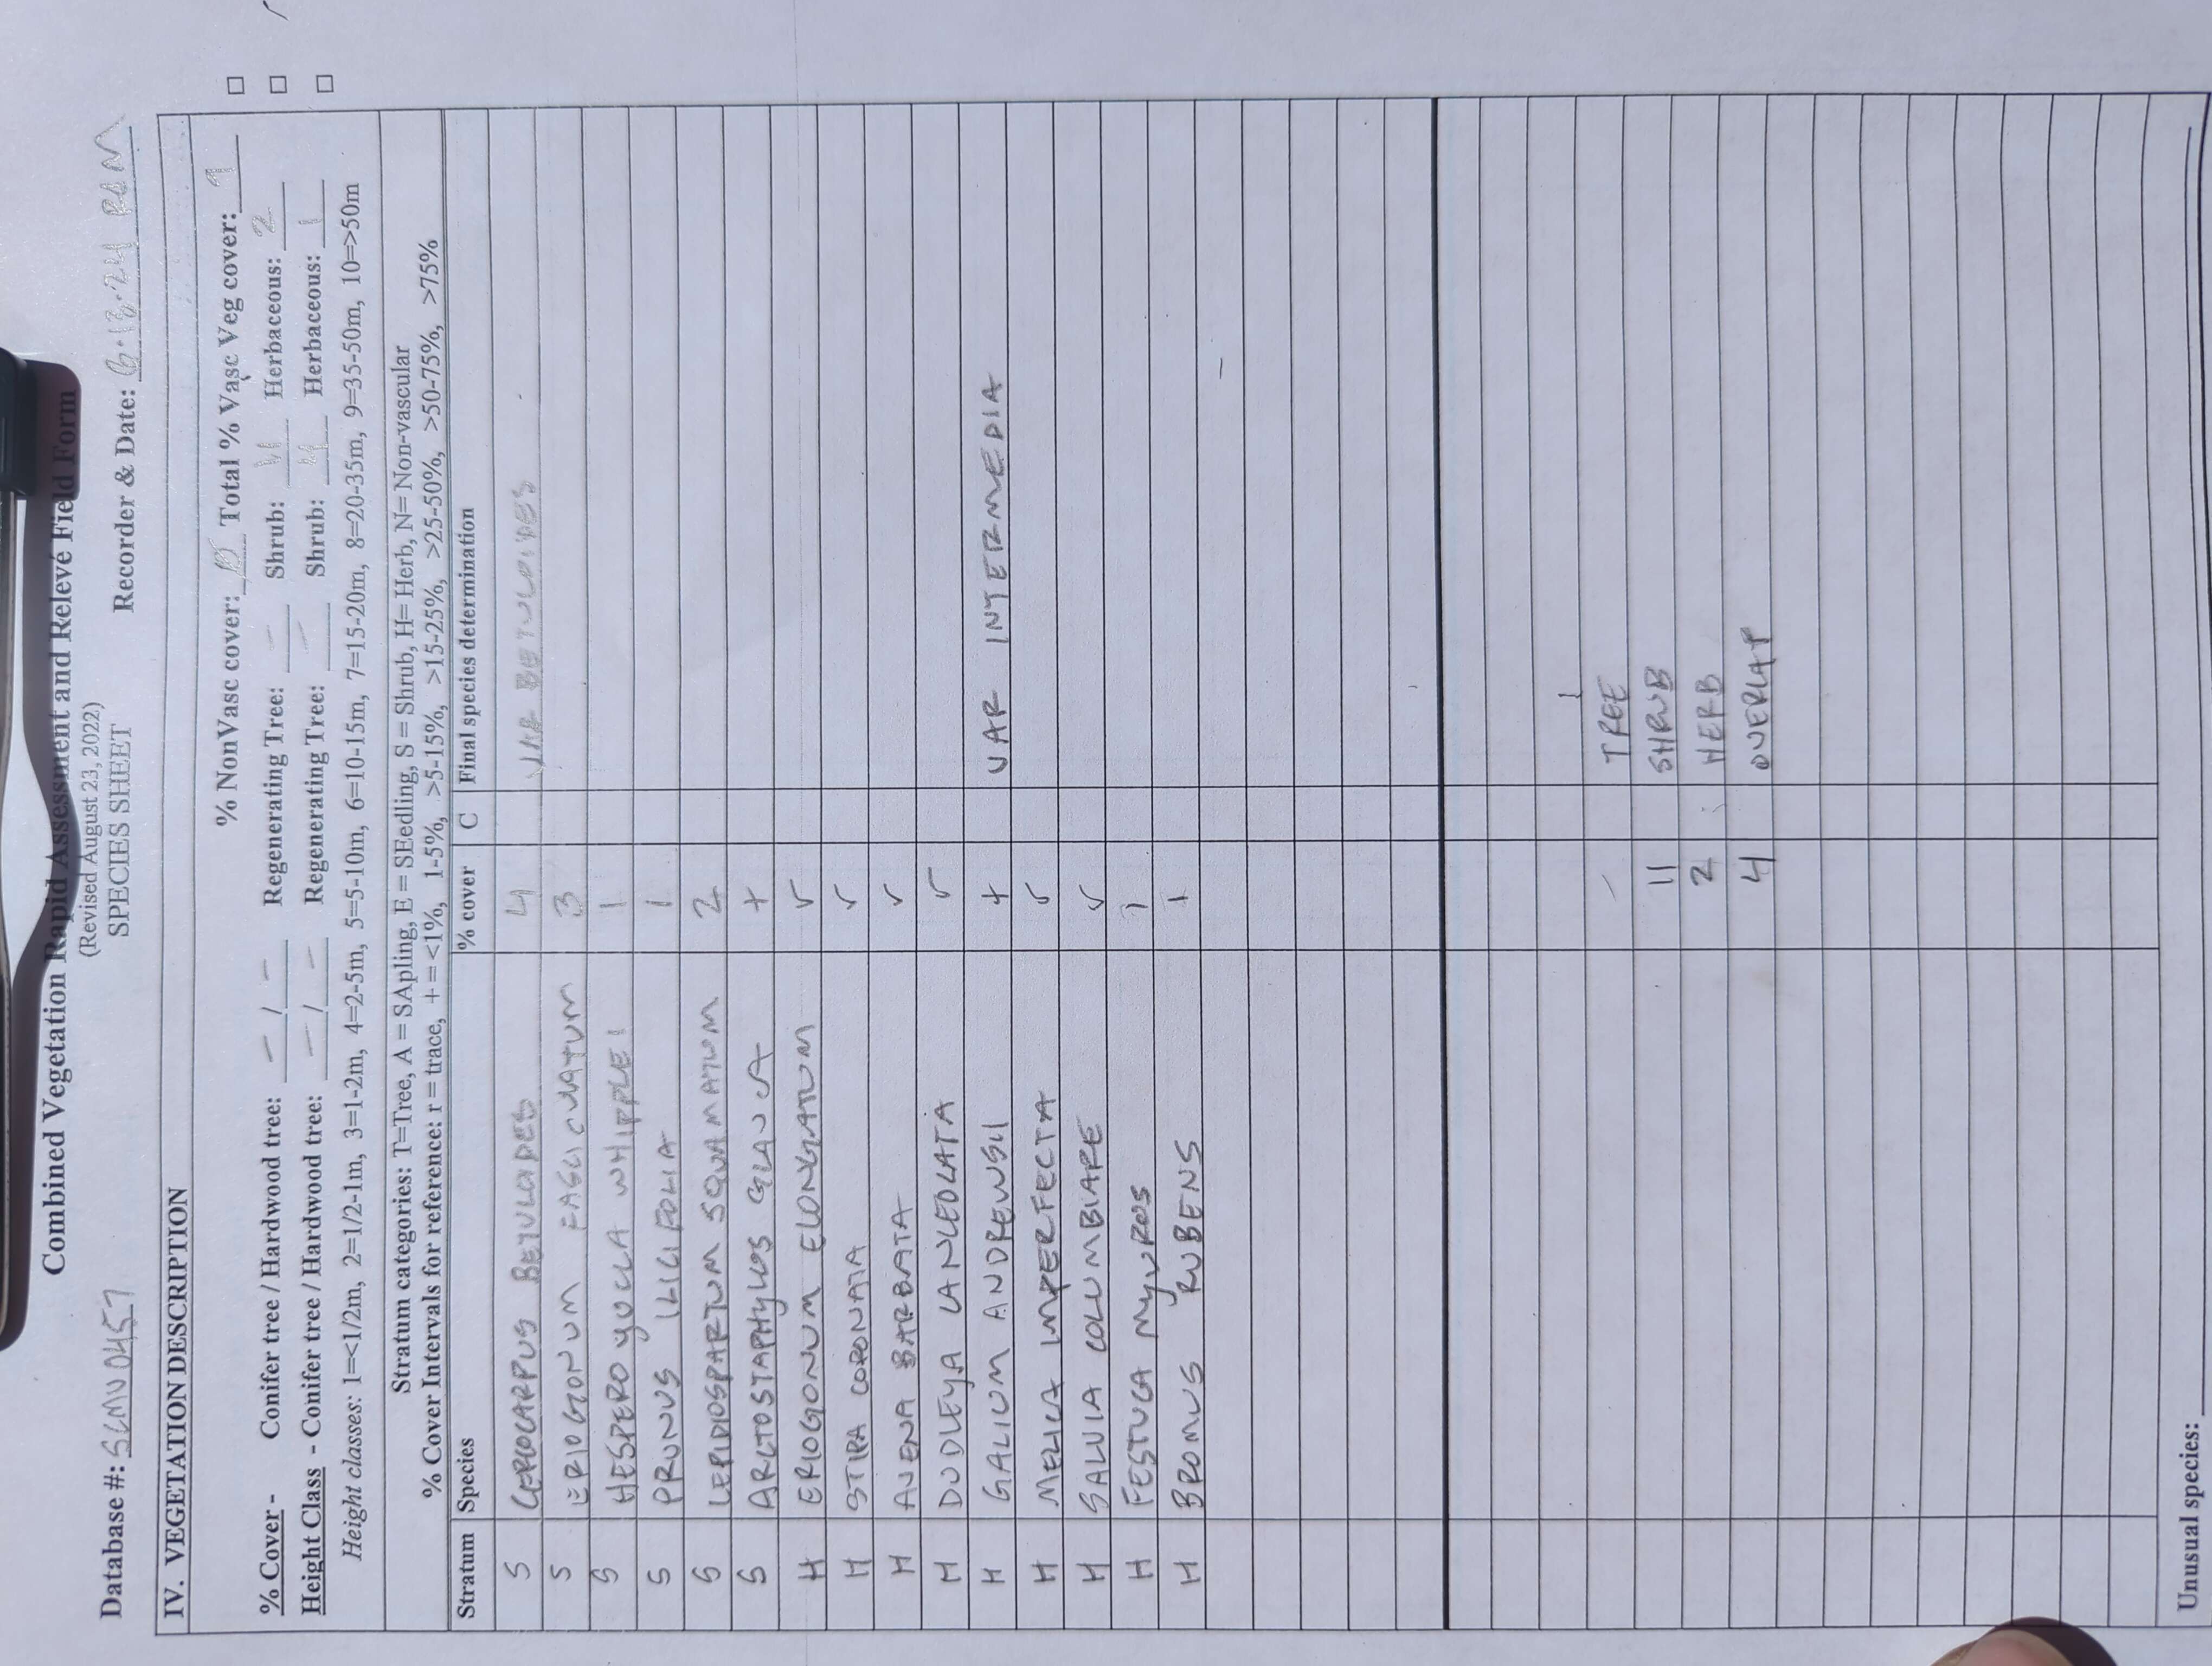 Combined Vegetation Rapid Assessment and Relevé Field Form
(Revised August 23, 2022)
SPECIES SHEET
Database #: SCMV0457 Recorder & Date: 6.13.24
IV. VEGETATION DESCRIPTION
% NonVasc cover: Total % Vasc Veg cover: 9
% Cover - Conifer tree / Hardwood tree: - / - Regenerating Tree: - Shrub: 11 Herbaceous: 2
Height Class - Conifer tree / Hardwood tree: - / - Regenerating Tree: - Shrub: 4 Herbaceous: 1
Height classes: 1=<1/2m, 2=1/2-1m, 3=1-2m, 4=2-5m, 5=5-10m, 6=10-15m, 7=15-20m, 8=20-35m, 9=35-50m, 10=>50m
Stratum categories: T=Tree, A = SApling, E = SEedling, S = Shrub, H= Herb, N= Non-vascular
% Cover Intervals for reference: r = trace, + = <1%, 1-5%, >5-15%, >15-25%, >25-50%, >50-75%, >75%
Stratum Species % cover C Final species determination
S CERCOCARPUS BETULOIDES 4 VAR BETULOIDES
S ERIOGONUM FASCICULATUM 3
S HESPEROYUCCA WHIPPLEI 1
S PRUNUS ILICIFOLIA 1
S LEPIDIOSPARTUM SQUAMATUM 2
S ARCTOSTAPHYLOS GLAUCA +
H ERIOGONUM ELONGATUM r
H STIPA CORONATA r
H AVENA BARBATA r
H DUDLEYA LANCEOLATA r
H GALIUM ANDREWSII + VAR INTERMEDIA
H MELICA IMPERFECTA r
H SALVIA COLUMBIARE r
H FESTUCA MYUROS 1
H BROMUS RUBENS 1
- TREE
11 SHRUB
2 HERB
4 OVERLAP
Unusual species: